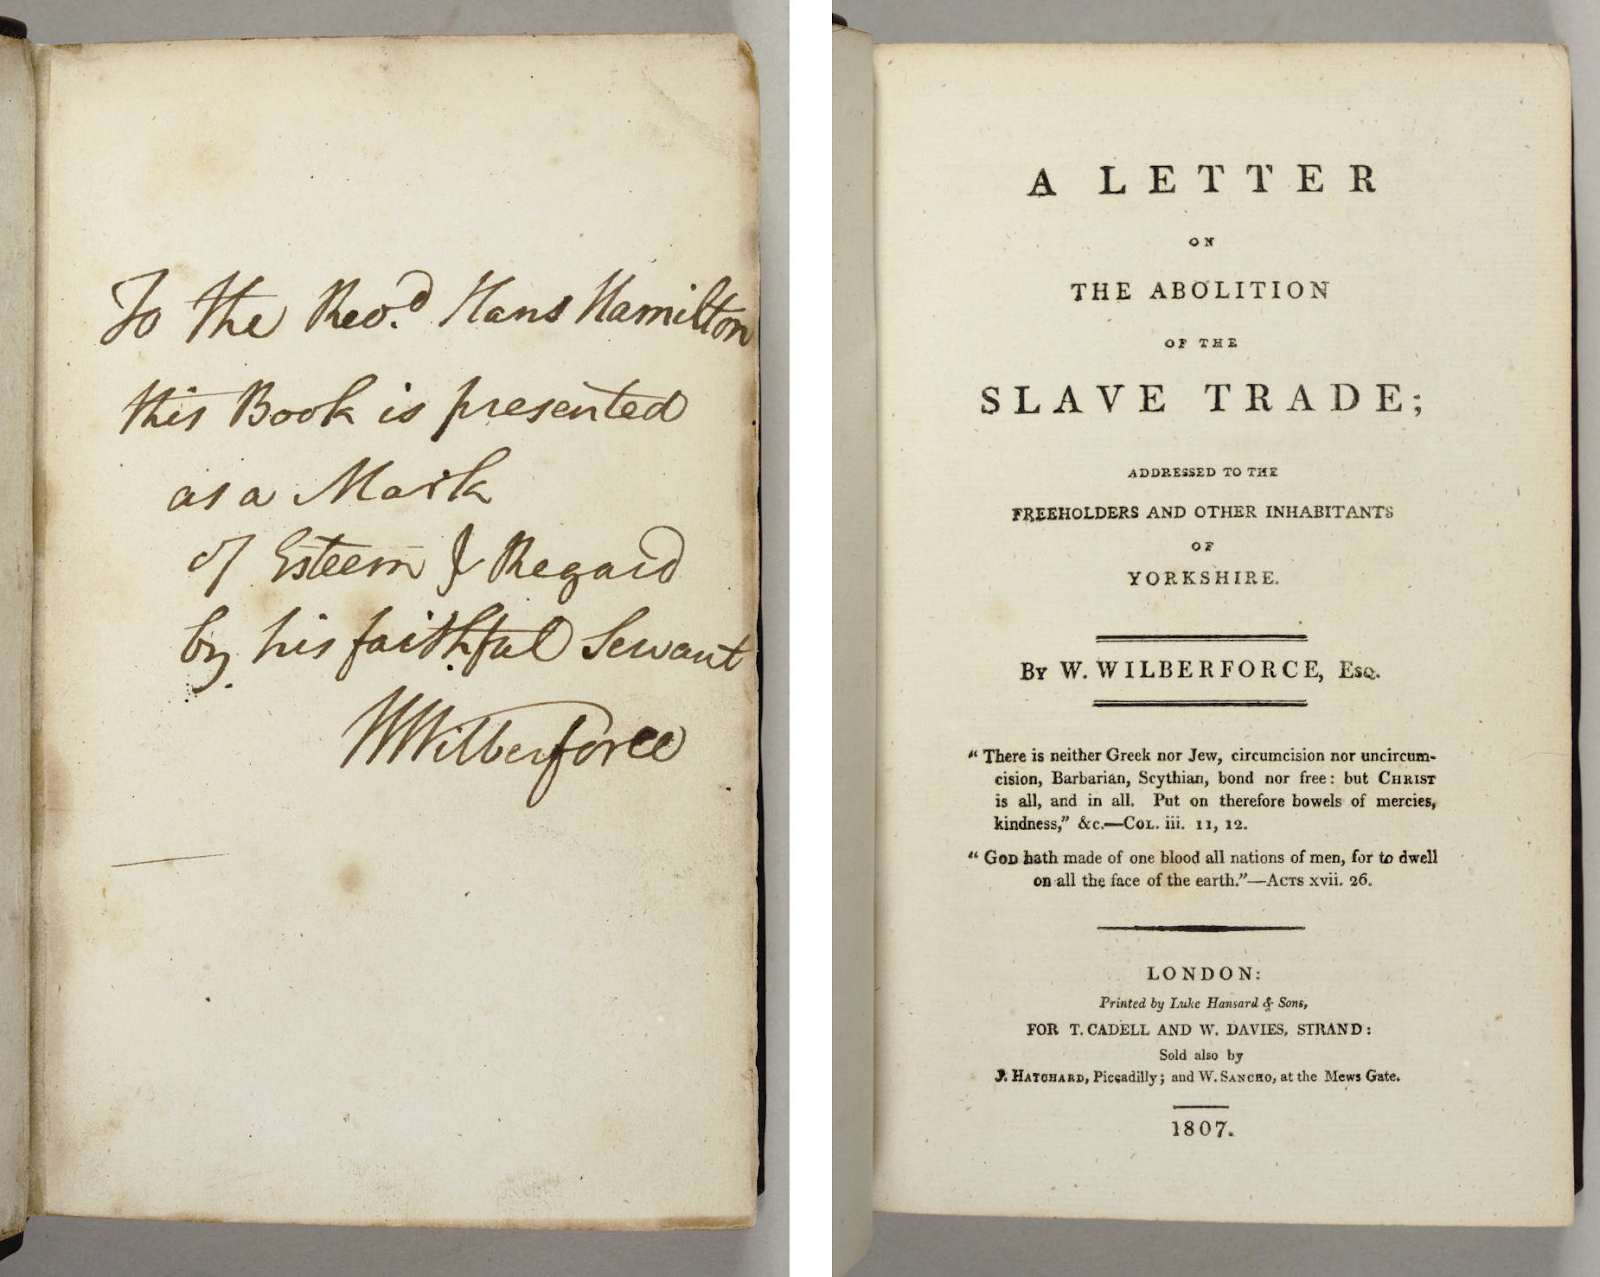 To the Rev.d Hans Hamilton
this Book is presented
as a Mark
of Esteem & Regard
by his faithful Servant
WWilberforce
A LETTER
ON
THE ABOLITION
OF THE
SLAVE TRADE;
ADDRESSED TO THE
FREEHOLDERS AND OTHER INHABITANTS
OF
YORKSHIRE.
By W. WILBERFORCE, Esq.
“ There is neither Greek nor Jew, circumcision nor uncircum-
cision, Barbarian, Scythian, bond nor free: but CHRIST
is all, and in all. Put on therefore bowels of mercies,
kindness,” &c.—COL. iii. 11, 12.
“ GOD hath made of one blood all nations of men, for to dwell
on all the face of the earth.”—ACTS xvii. 26.
LONDON:
Printed by Luke Hansard & Sons,
FOR T. CADELL AND W. DAVIES, STRAND:
Sold also by
J. HATCHARD, Piccadilly; and W. SANCHO, at the Mews Gate.
1807.